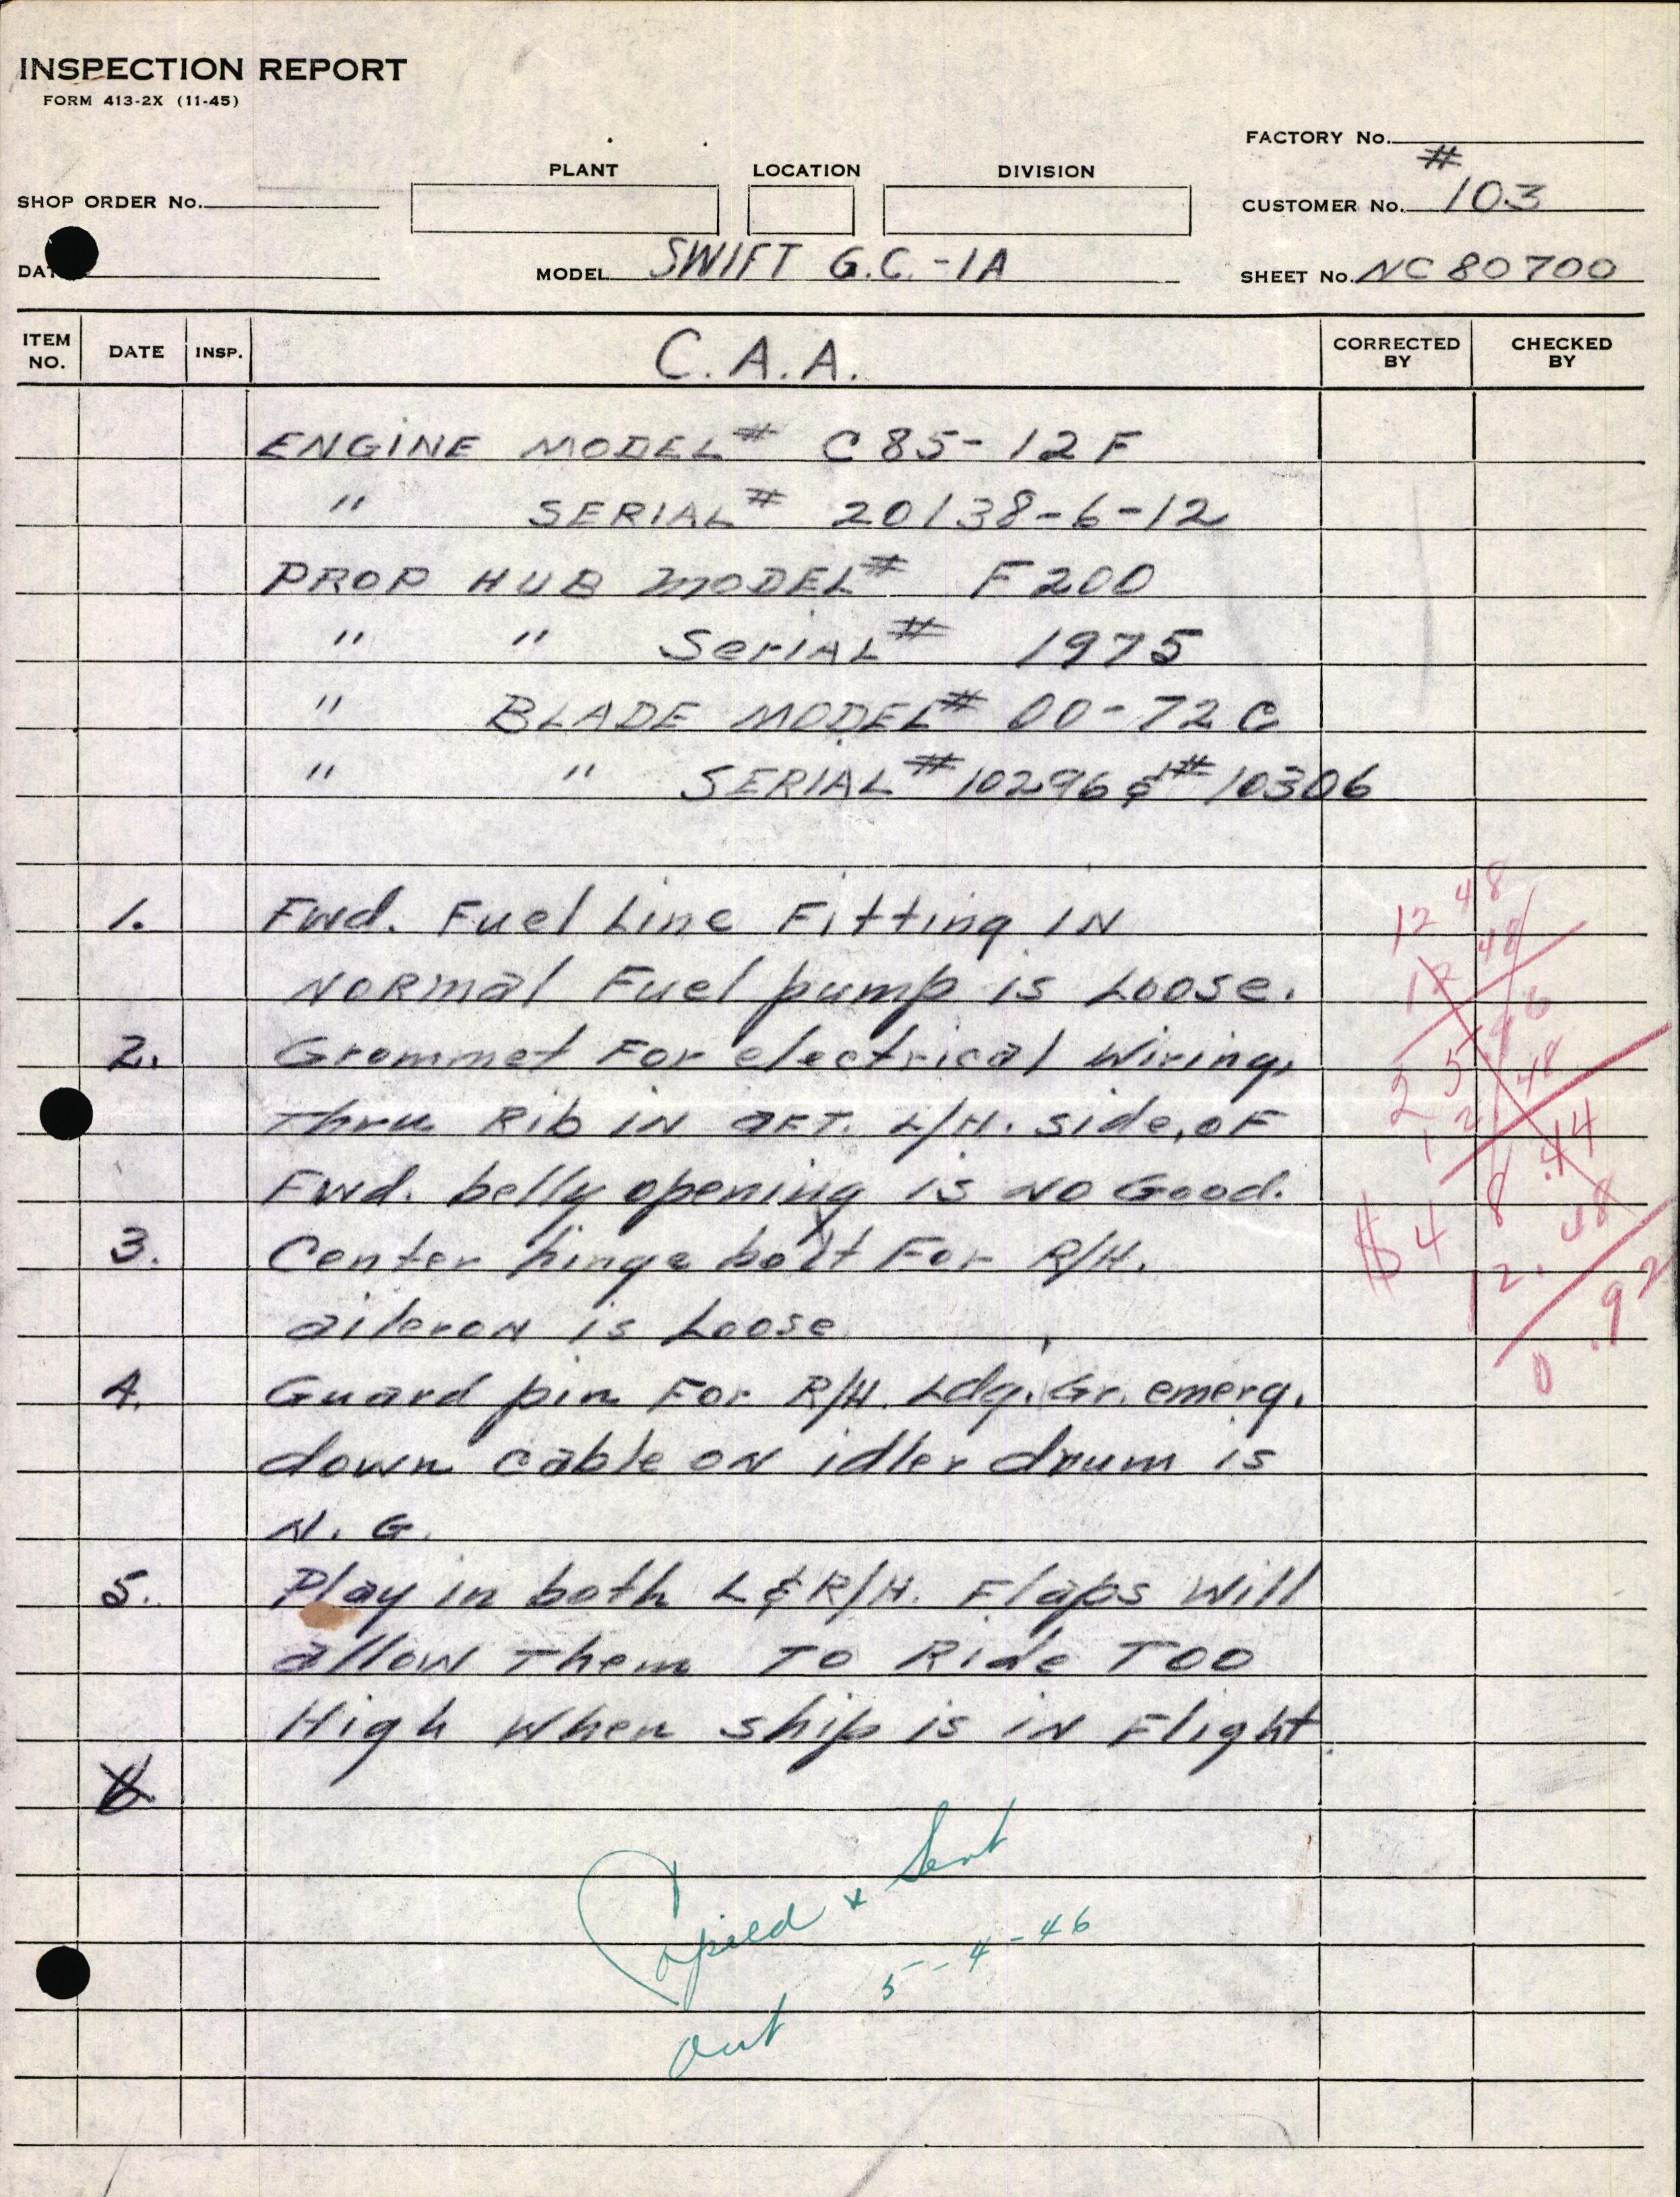 INSPECTION REPORT
FORM 413-2X (11-45)
FACTORY No.
PLANT LOCATION DIVISION
#
SHOP ORDER No.
CUSTOMER No. 103
MODEL SWIFT G.C.-1A
SHEET No. NC 80700
ITEM NO. DATE INSP. C.A.A. CORRECTED BY CHECKED BY
ENGINE MODEL# C85-12F
" SERIAL# 20138-6-12
PROP HUB MODEL# F200
" " SeriAL# 1975
" BLADE MODEL# 00-72C
" " SERIAL #10296 & #10306
1. Fwd. Fuel Line Fitting IN
NORmal Fuel pump is Loose.
2. Grommet For electrical Wiring,
Thru Rib IN aFT. L/H. side, oF
Fwd. belly opening is No Good.
3. Center hinge bolt For R/H.
aileron is Loose
4. Guard pin For R/H. Ldg. Gr. emerg.
down cable oN idler drum is
N. G.
5. Play in both L & R/H. Flaps Will
allow Them To Ride TOO
High When ship is iN Flight.
Copied & Sent
out 5-4-46
12 48
48
$4
12.
.92
0